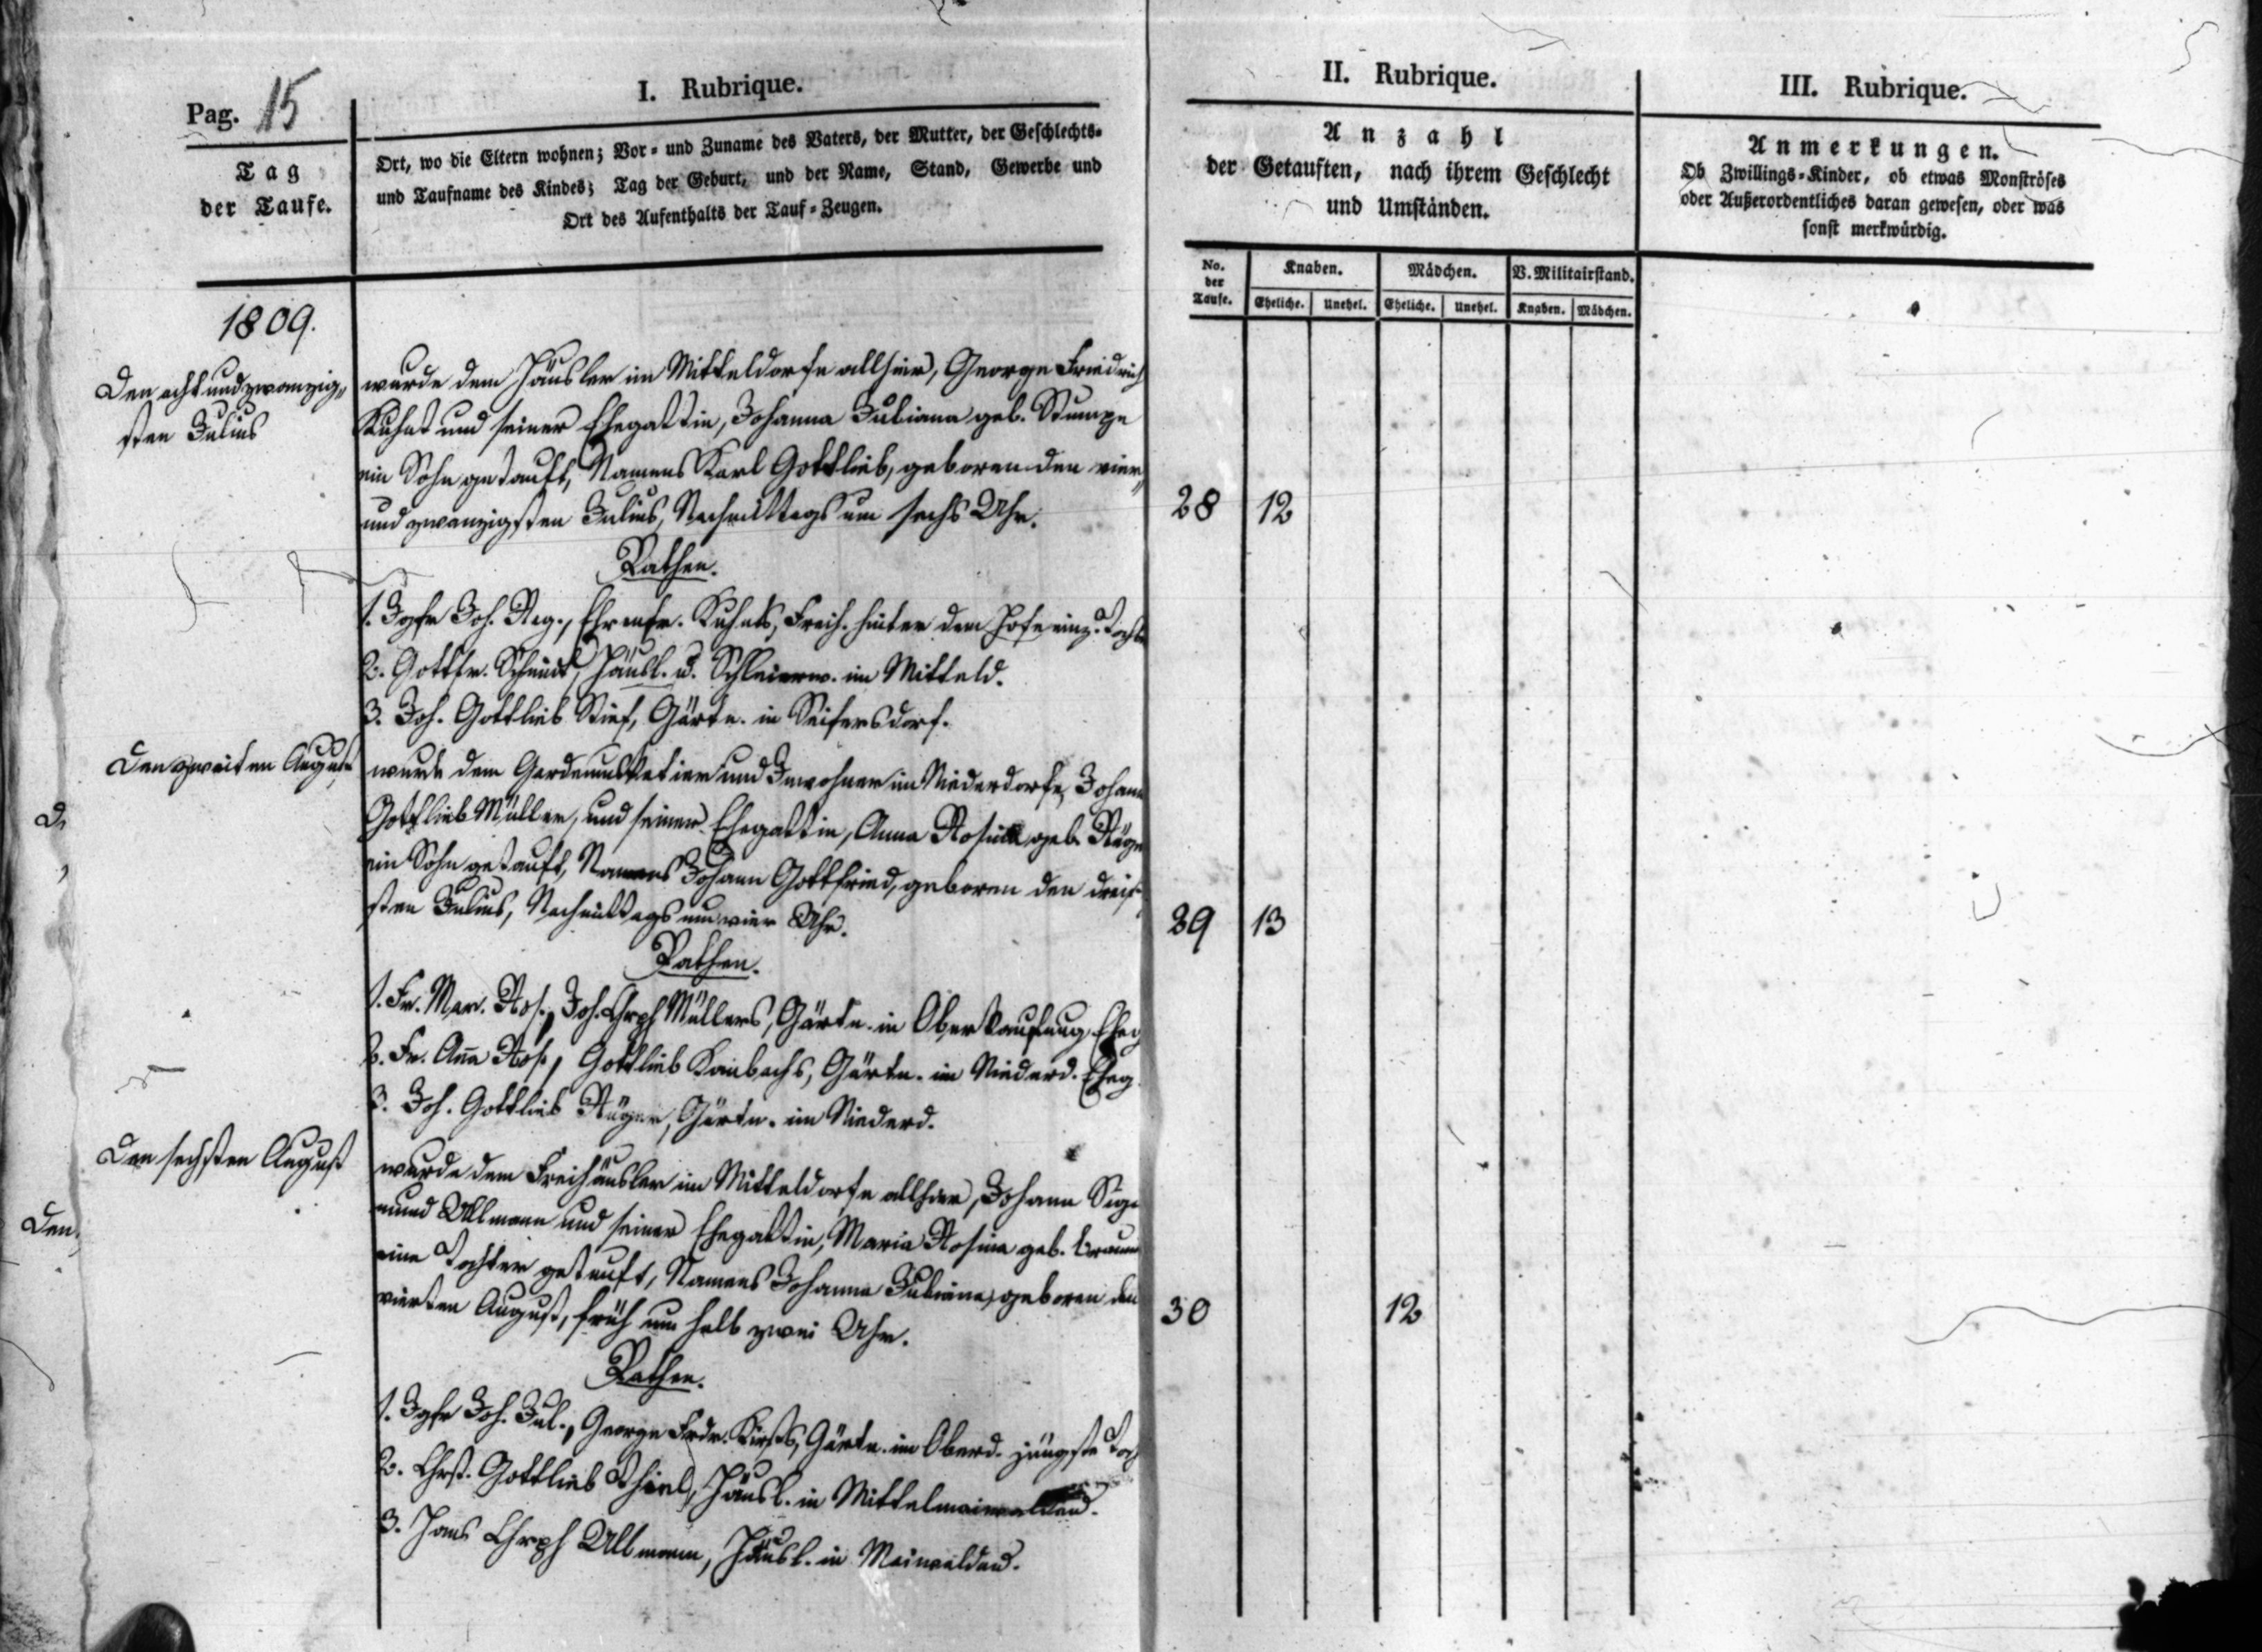 Pag. 15
I. Rubrique.
Tag
der Taufe.
Ort, wo die Eltern wohnen; Vor- und Zuname des Vaters, der Mutter, der Geschlechts-
und Taufname des Kindes; Tag der Geburt, und der Name, Stand, Gewerbe und
Ort des Aufenthalts der Tauf-Zeugen.
II. Rubrique.
Anzahl
der Getauften, nach ihrem Geschlecht
und Umständen.
III. Rubrique.
Anmerkungen.
Ob Zwillings-Kinder, ob etwas Monströses
oder Außerordentliches daran gewesen, oder was
sonst merkwürdig.
No.
der
Taufe.
Knaben.
Mädchen.
V. Militairstand.
Eheliche. Unehel. Eheliche. Unehel. Knaben. Mädchen.
1809.
Den acht und zwanzig„
sten Julius
wurde dem Häusler im Mitteldorfe allhier, George Friedrich
Kuhnt und seiner Ehegattin, Johanna Juliana geb. Stumpe
ein Sohn getauft, Namens Karl Gottlieb, geboren den vier„
und zwanzigsten Julius, Nachmittags um sechs Uhr.
28 12
Pathen.
1. Jgfr Joh. Reg., Ehrenfr. Kuhnts, Freih. hinter dem Hofe einz. Tocht
2. Gottfr. Schmidt, Häusl. u. Schleierw. im Mitteld.
3. Joh. Gottlieb Stief, Gärtn. in Seifersdorf.
Den zweiten August
wurde dem Gardemusketier und Inwohner im Niederdorfe, Johann
Gottlieb Müller, und seiner Ehegattin, Anna Rosina geb.
ein Sohn getauft, Namens Johann Gottfried, geboren den dreis
sten Julius, Nachmittags um vier Uhr.
29 13
Pathen.
1. Fr. Mar. Ros., Joh. Chrph Müllers, Gärtn. in Oberkauffung Eheg
2. Fr. Aña Ros., Gottlieb Kambachs, Gärtn. im Niederd. Eheg.
3. Joh. Gottlieb Gärtn. im Niederd.
Den sechsten August
wurde dem Freihäusler im Mitteldorfe allhier, Johann Sige
mund Ullmann und seiner Ehegattin, Maria Rosina geb.
eine Tochter getauft, Namens Johanna Juliana, geboren den
vierten August, früh um halb zwei Uhr.
30 12
Pathen.
1. Jgfr Joh. Jul., George Frdr. Gärtn. im Oberd. jüngste Toch
2. Chrst. Gottlieb Thiel, Häusl. in Mittelmaiwaldau.
3. Hans Chrph Ullmann, Häusl. in Maiwaldau.
Den